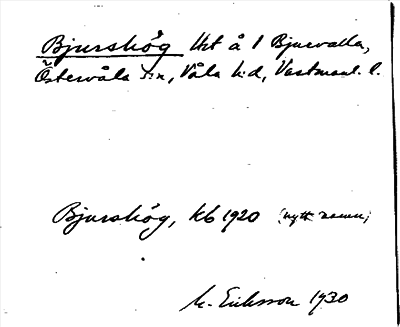 Bjurskog Utt å 1 Bjurvalla,
Östervåla s:n, Våla h:d, Vastmanl. l.
Bjurskog, kb 1920 (nytt namn)
M. Eriksson 1930